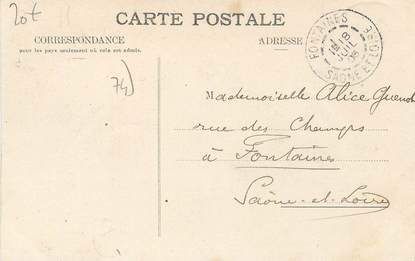 20t
CARTE POSTALE
CORRESPONDANCE
pour les pays seulement où cela est admis.
ADRESSE
FONTAINES
18
JUIL
SAONE ET LOIRE
74)
Mademoiselle Alice
rue des Champs
à Fontaines
Saône-et-Loire